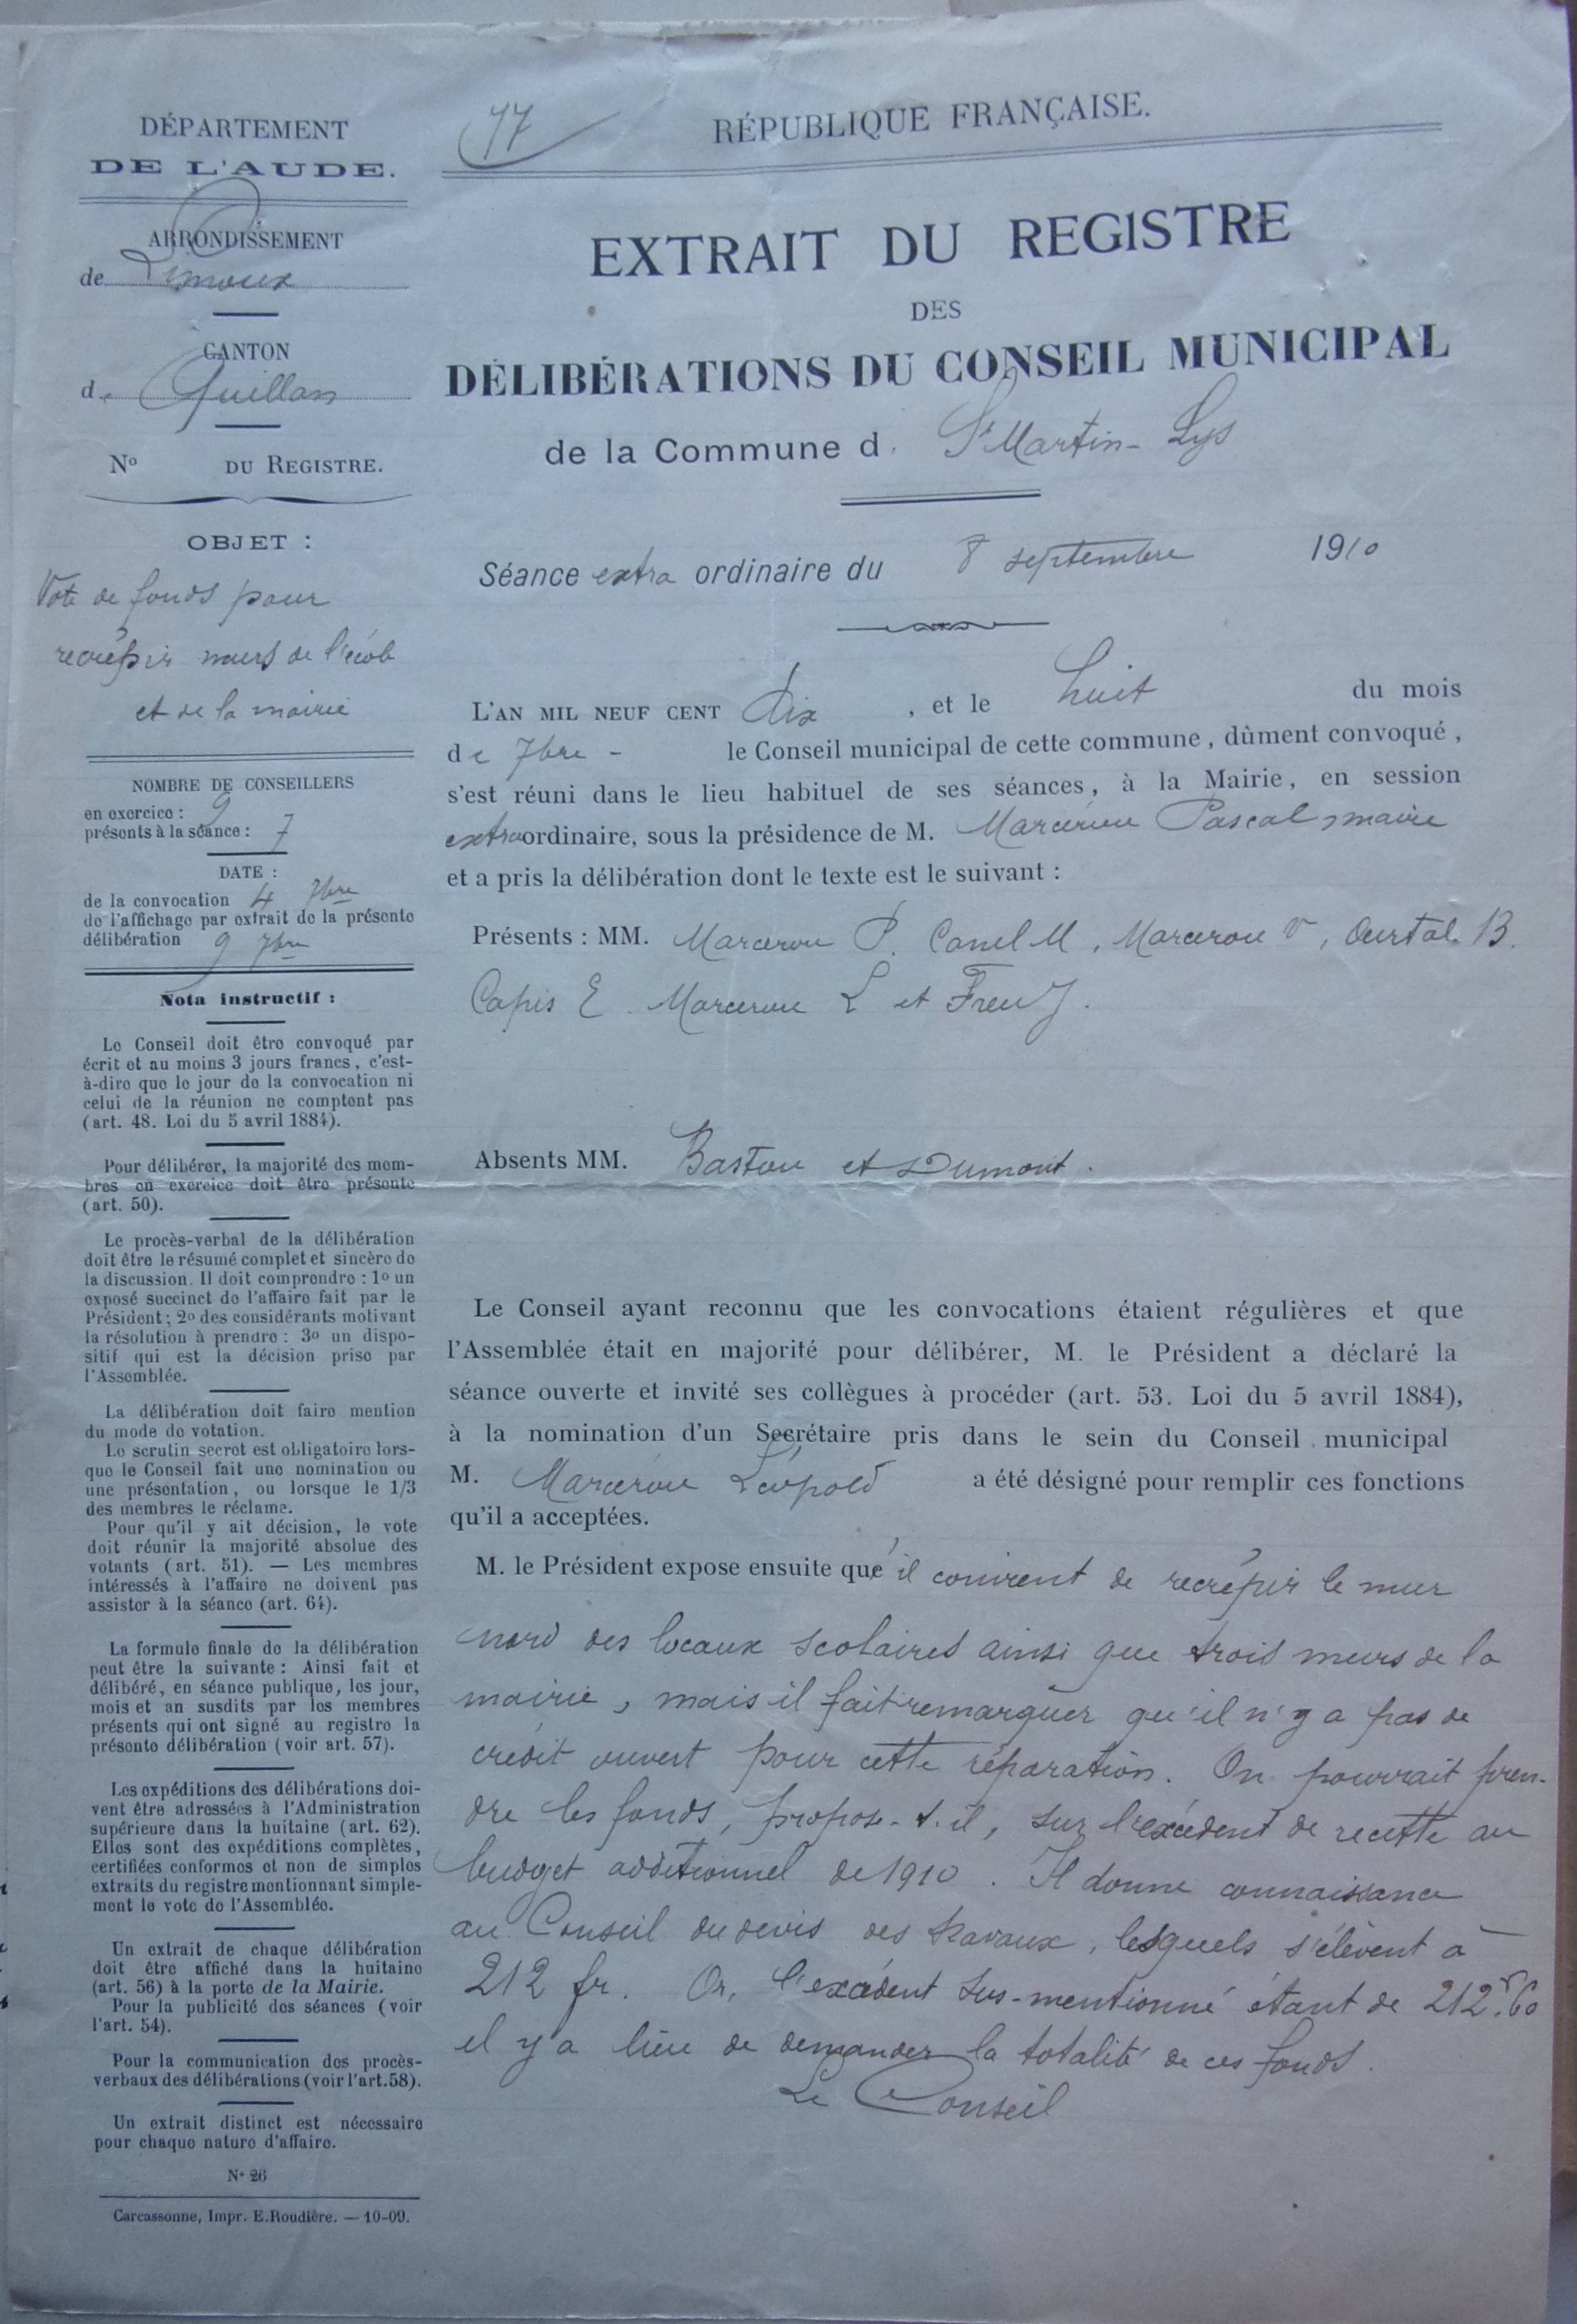 DÉPARTEMENT
DE L'AUDE.
ARRONDISSEMENT
de Limoux
CANTON
de Quillan
N° DU REGISTRE.
OBJET :
Vote de fonds pour
recrépir murs de l'école
et de la mairie
NOMBRE DE CONSEILLERS
en exercice : 9
présents à la séance : 7
DATE :
de la convocation 4 7bre
de l'affichage par extrait de la présente
délibération 9 7bre
Nota instructif :
Le Conseil doit être convoqué par
écrit et au moins 3 jours francs, c'est-
à-dire que le jour de la convocation ni
celui de la réunion ne comptent pas
(art. 48. Loi du 5 avril 1884).
Pour délibérer, la majorité des mem-
bres en exercice doit être présente
(art. 50).
Le procès-verbal de la délibération
doit être le résumé complet et sincère de
la discussion. Il doit comprendre : 1° un
exposé succinct de l'affaire fait par le
Président ; 2° des considérants motivant
la résolution à prendre : 3° un dispo-
sitif qui est la décision prise par
l'Assemblée.
La délibération doit faire mention
du mode de votation.
Le scrutin secret est obligatoire lors-
que le Conseil fait une nomination ou
une présentation, ou lorsque le 1/3
des membres le réclame.
Pour qu'il y ait décision, le vote
doit réunir la majorité absolue des
votants (art. 51). — Les membres
intéressés à l'affaire ne doivent pas
assister à la séance (art. 64).
La formule finale de la délibération
peut être la suivante : Ainsi fait et
délibéré, en séance publique, les jour,
mois et an susdits par les membres
présents qui ont signé au registre la
présente délibération (voir art. 57).
Les expéditions des délibérations doi-
vent être adressées à l'Administration
supérieure dans la huitaine (art. 62).
Elles sont des expéditions complètes,
certifiées conformes et non de simples
extraits du registre mentionnant simple-
ment le vote de l'Assemblée.
Un extrait de chaque délibération
doit être affiché dans la huitaine
(art. 56) à la porte de la Mairie.
Pour la publicité des séances (voir
l'art. 54).
Pour la communication des procès-
verbaux des délibérations (voir l'art. 58).
Un extrait distinct est nécessaire
pour chaque nature d'affaire.
N° 26
Carcassonne, Impr. E. Roudière. — 10-09.
77
RÉPUBLIQUE FRANÇAISE.
EXTRAIT DU REGISTRE
DES
DÉLIBÉRATIONS DU CONSEIL MUNICIPAL
de la Commune d. St Martin-Lys
Séance extra ordinaire du 8 septembre 1910
L'AN MIL NEUF CENT dix, et le huit du mois
de 7bre - le Conseil municipal de cette commune, dûment convoqué,
s'est réuni dans le lieu habituel de ses séances, à la Mairie, en session
extraordinaire, sous la présidence de M. Marcerou Pascal, maire
et a pris la délibération dont le texte est le suivant :
Présents : MM. Marcerou P. Canel M, Marcerou V, Ourtal B.
Capis E. Marcerou L et Freu J.
Absents MM. Bastou et Dumont.
Le Conseil ayant reconnu que les convocations étaient régulières et que
l'Assemblée était en majorité pour délibérer, M. le Président a déclaré la
séance ouverte et invité ses collègues à procéder (art. 53. Loi du 5 avril 1884),
à la nomination d'un Secrétaire pris dans le sein du Conseil municipal
M. Marcerou Léopold a été désigné pour remplir ces fonctions
qu'il a acceptées.
M. le Président expose ensuite qu'il convient de recrépir le mur
nord des locaux scolaires ainsi que trois murs de la
mairie, mais il fait remarquer qu'il n'y a pas de
crédit ouvert pour cette réparation. On pourrait pren-
dre les fonds, propose-t-il, sur l'excédent de recette au
budget additionnel de 1910. Il donne connaissance
au Conseil du devis des travaux, lesquels s'élèvent à
212 fr. Or, l'excédent sus-mentionné étant de 212f.60
il y a lieu de demander la totalité de ces fonds.
Le Conseil